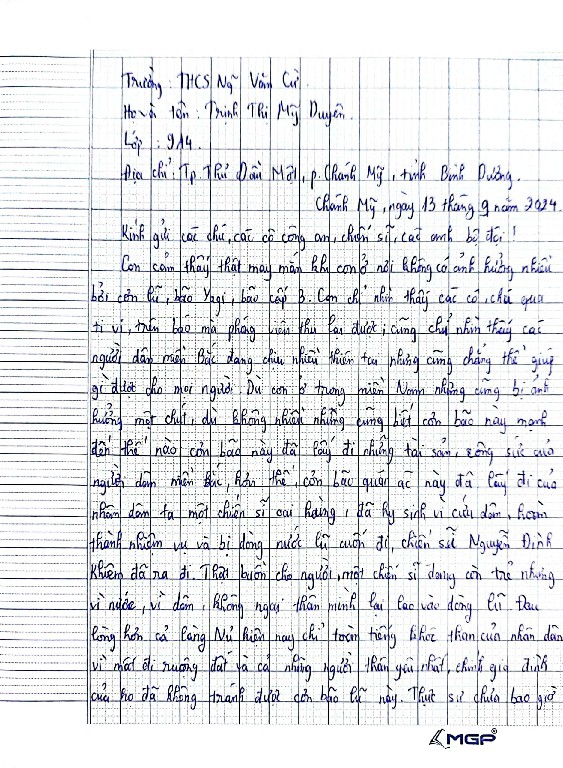 Trường: THCS Ngô Văn Cừ.
Họ và tên: Trịnh Thị Mỹ Duyên.
Lớp: 9/14.
Địa chỉ: Tp. Thủ Dầu Một, p. Chánh Mỹ, tỉnh Bình Dương.
Chánh Mỹ, ngày 13 tháng 9 năm 2024.
Kính gửi các chú, các cô công an, chiến sĩ, các anh bộ đội!
Con cảm thấy thật may mắn khi con ở nơi không có ảnh hưởng nhiều
bởi cơn lũ, bão Yagi, bão cấp 3. Con chỉ nhìn thấy các cô, chú qua
ti vi, trên báo mà phóng viên thu lại được, cũng chỉ nhìn thấy các
người dân miền Bắc đang chịu nhiều thiên tai nhưng cũng chẳng thể giúp
gì được cho mọi người. Dù con ở trong miền Nam nhưng cũng bị ảnh
hưởng một chút, dù không nhiều nhưng cũng biết cơn bão này mạnh
đến thế nào cơn bão này đã lấy đi những tài sản, công sức của
người dân miền Bắc, hơn thế, cơn bão quái ác này đã lấy đi của
nhân dân ta một chiến sĩ oai hùng, đã hy sinh vì cứu dân, hoàn
thành nhiệm vụ và bị dòng nước lũ cuốn đi, chiến sĩ Nguyễn Đình
Khiêm đã ra đi. Thật buồn cho người, một chiến sĩ đang còn trẻ nhưng
vì nước, vì dân, không ngại thân mình lại lao vào dòng lũ. Đau
lòng hơn cả làng Nủ hiện nay chỉ toàn tiếng khóc than của nhân dân
vì mất đi ruộng đất và cả những người thân yêu nhất, chính gia đình
của họ đã không tránh được cơn bão lũ này. Thực sự chưa bao giờ
MGP